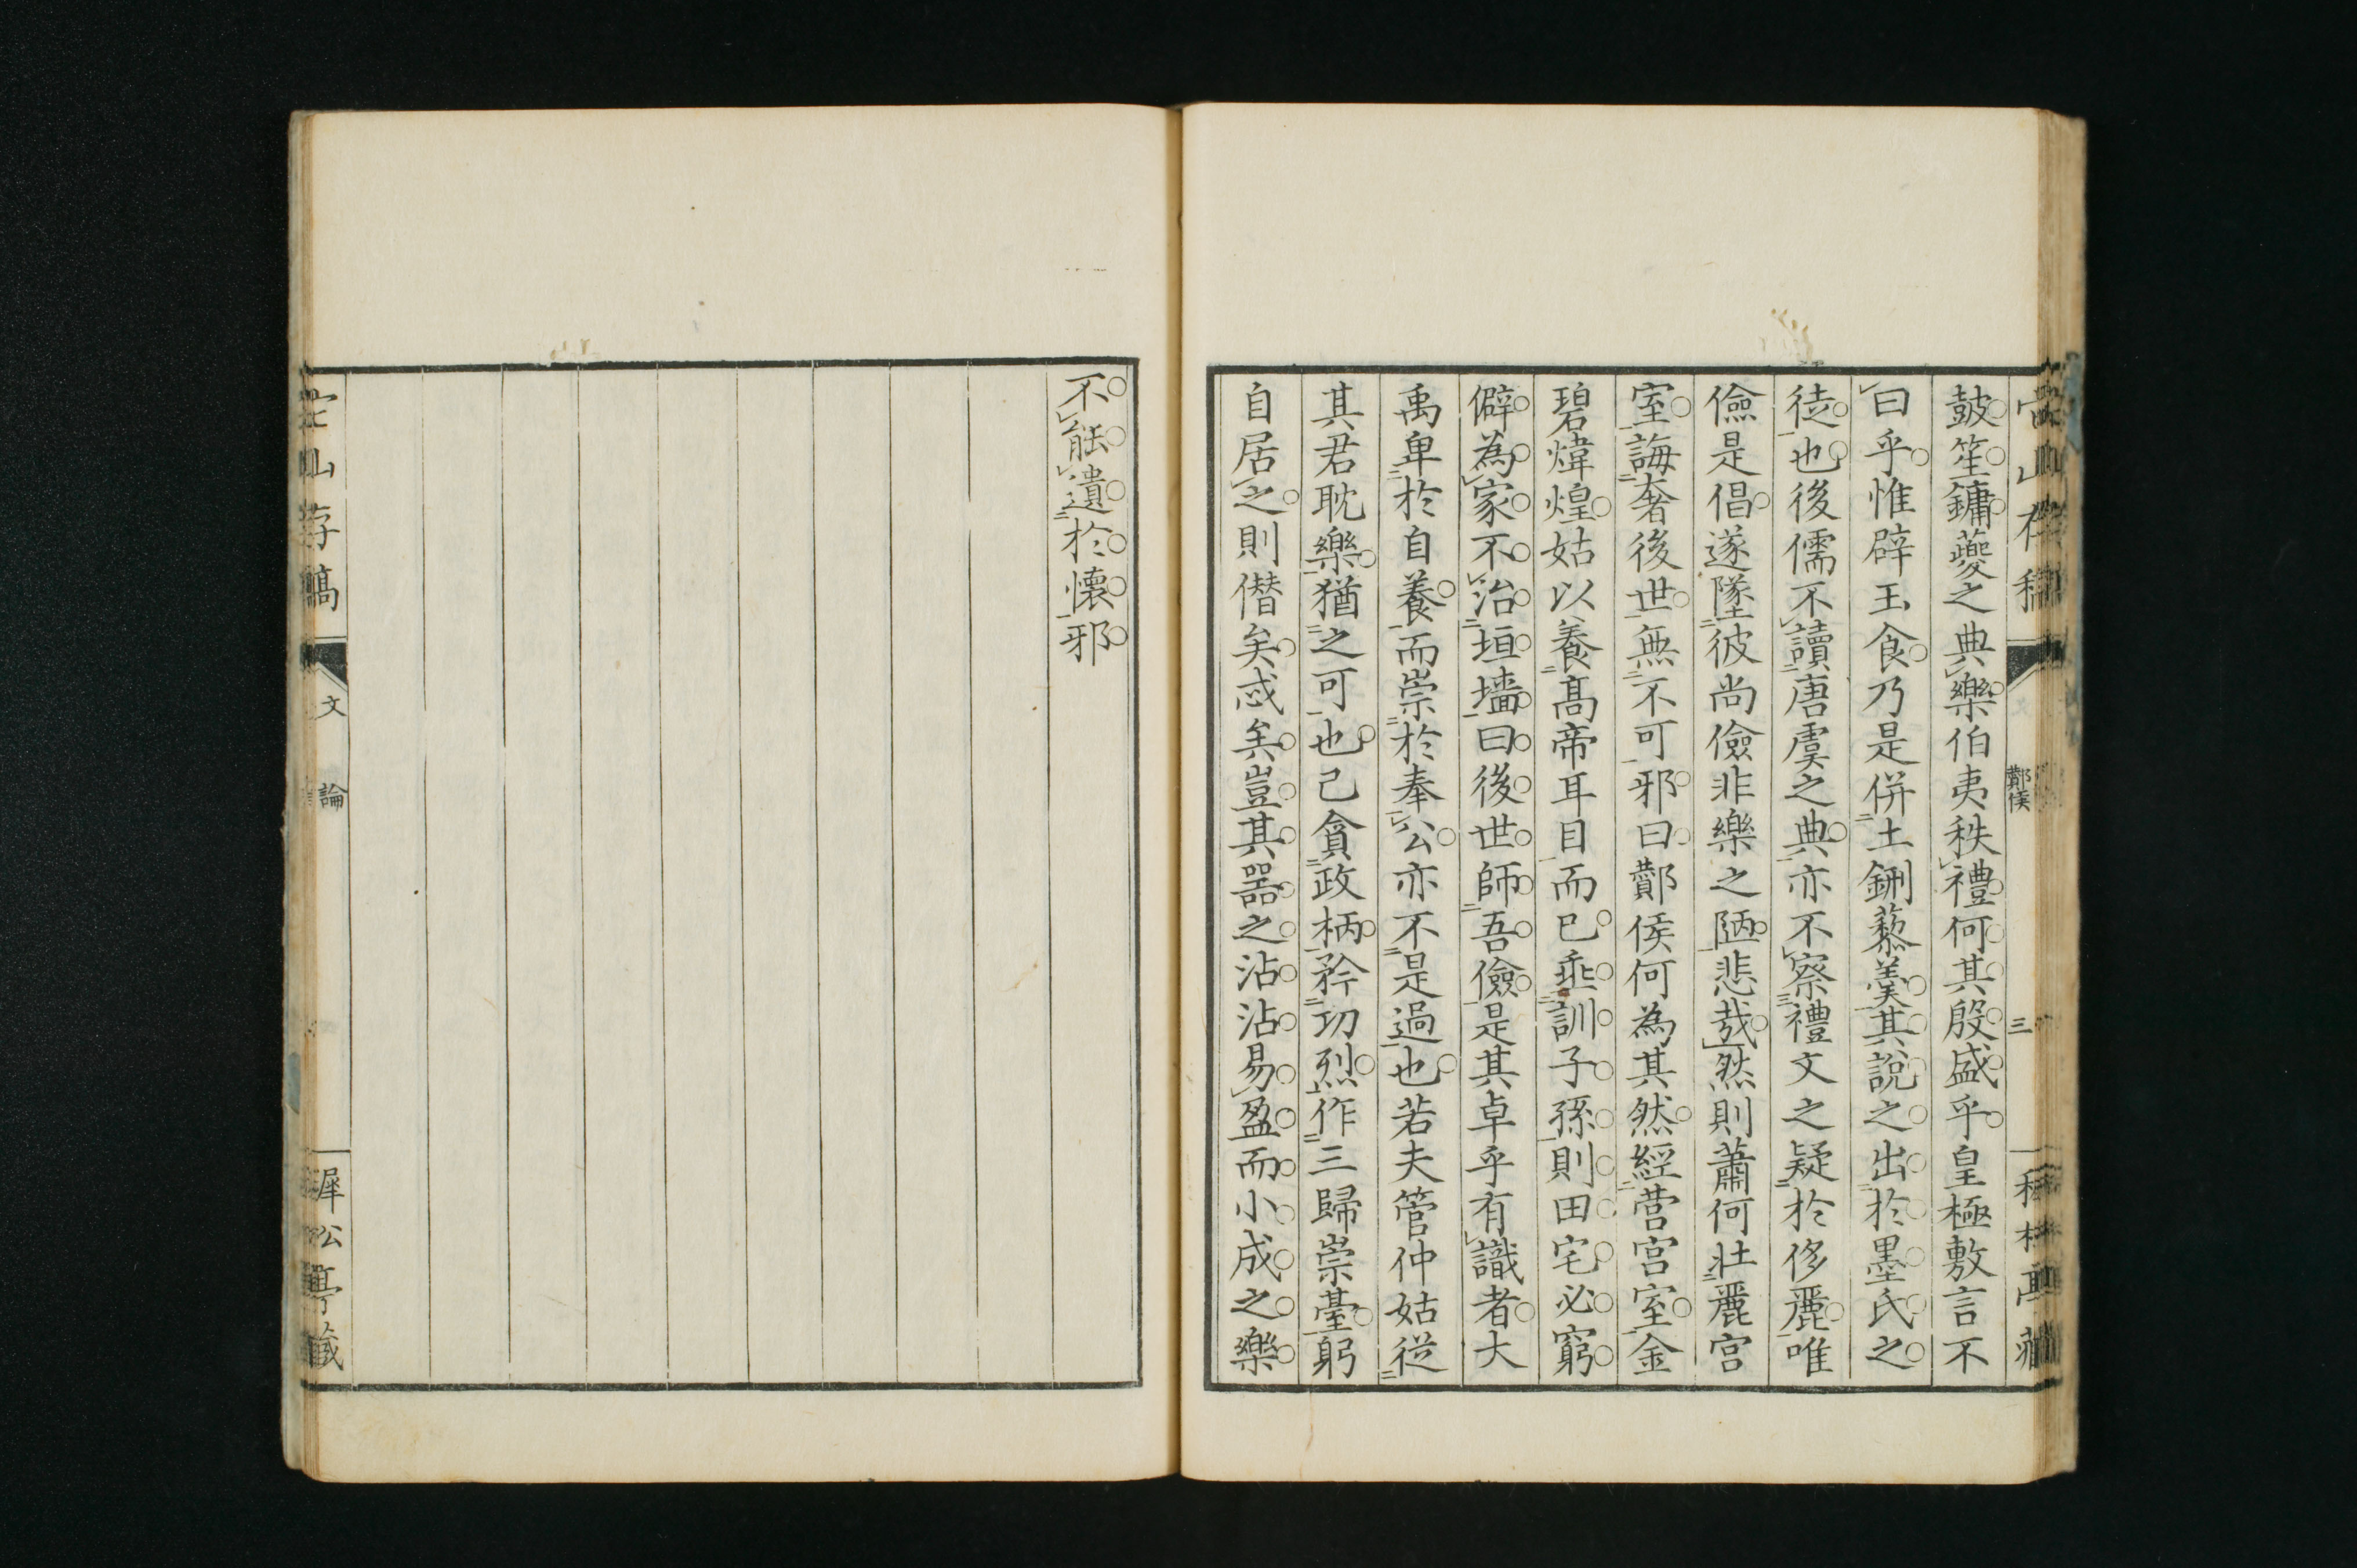 鼓笙鏞夔之典樂伯夷秩禮何其殷盛乎皇極敷言不
曰乎惟辟玉食乃是併土鉶藜羹其說之出於墨氏之
徒也後儒不讀唐虞之典亦不察禮文之疑於侈麗唯
儉是倡遂墜彼尚儉非樂之陋悲哉然則蕭何壯麗宮
室誨奢後世無不可邪曰酇侯何為其然經営宮室金
碧煒煌姑以養高帝耳目而已垂訓子孫則田宅必窮
僻為家不治垣墻曰後世師吾儉是其卓乎有識者大
禹卑於自養而崇於奉公亦不是過也若夫管仲姑從
其君耽樂猶之可也己貪政柄矜功烈作三歸崇臺躬
自居之則僭矣忒矣豈其器之沾沾易盈而小成之樂
酇侯
三
不能遺於懷邪
宕山存稿
文
論
犀松亭藏